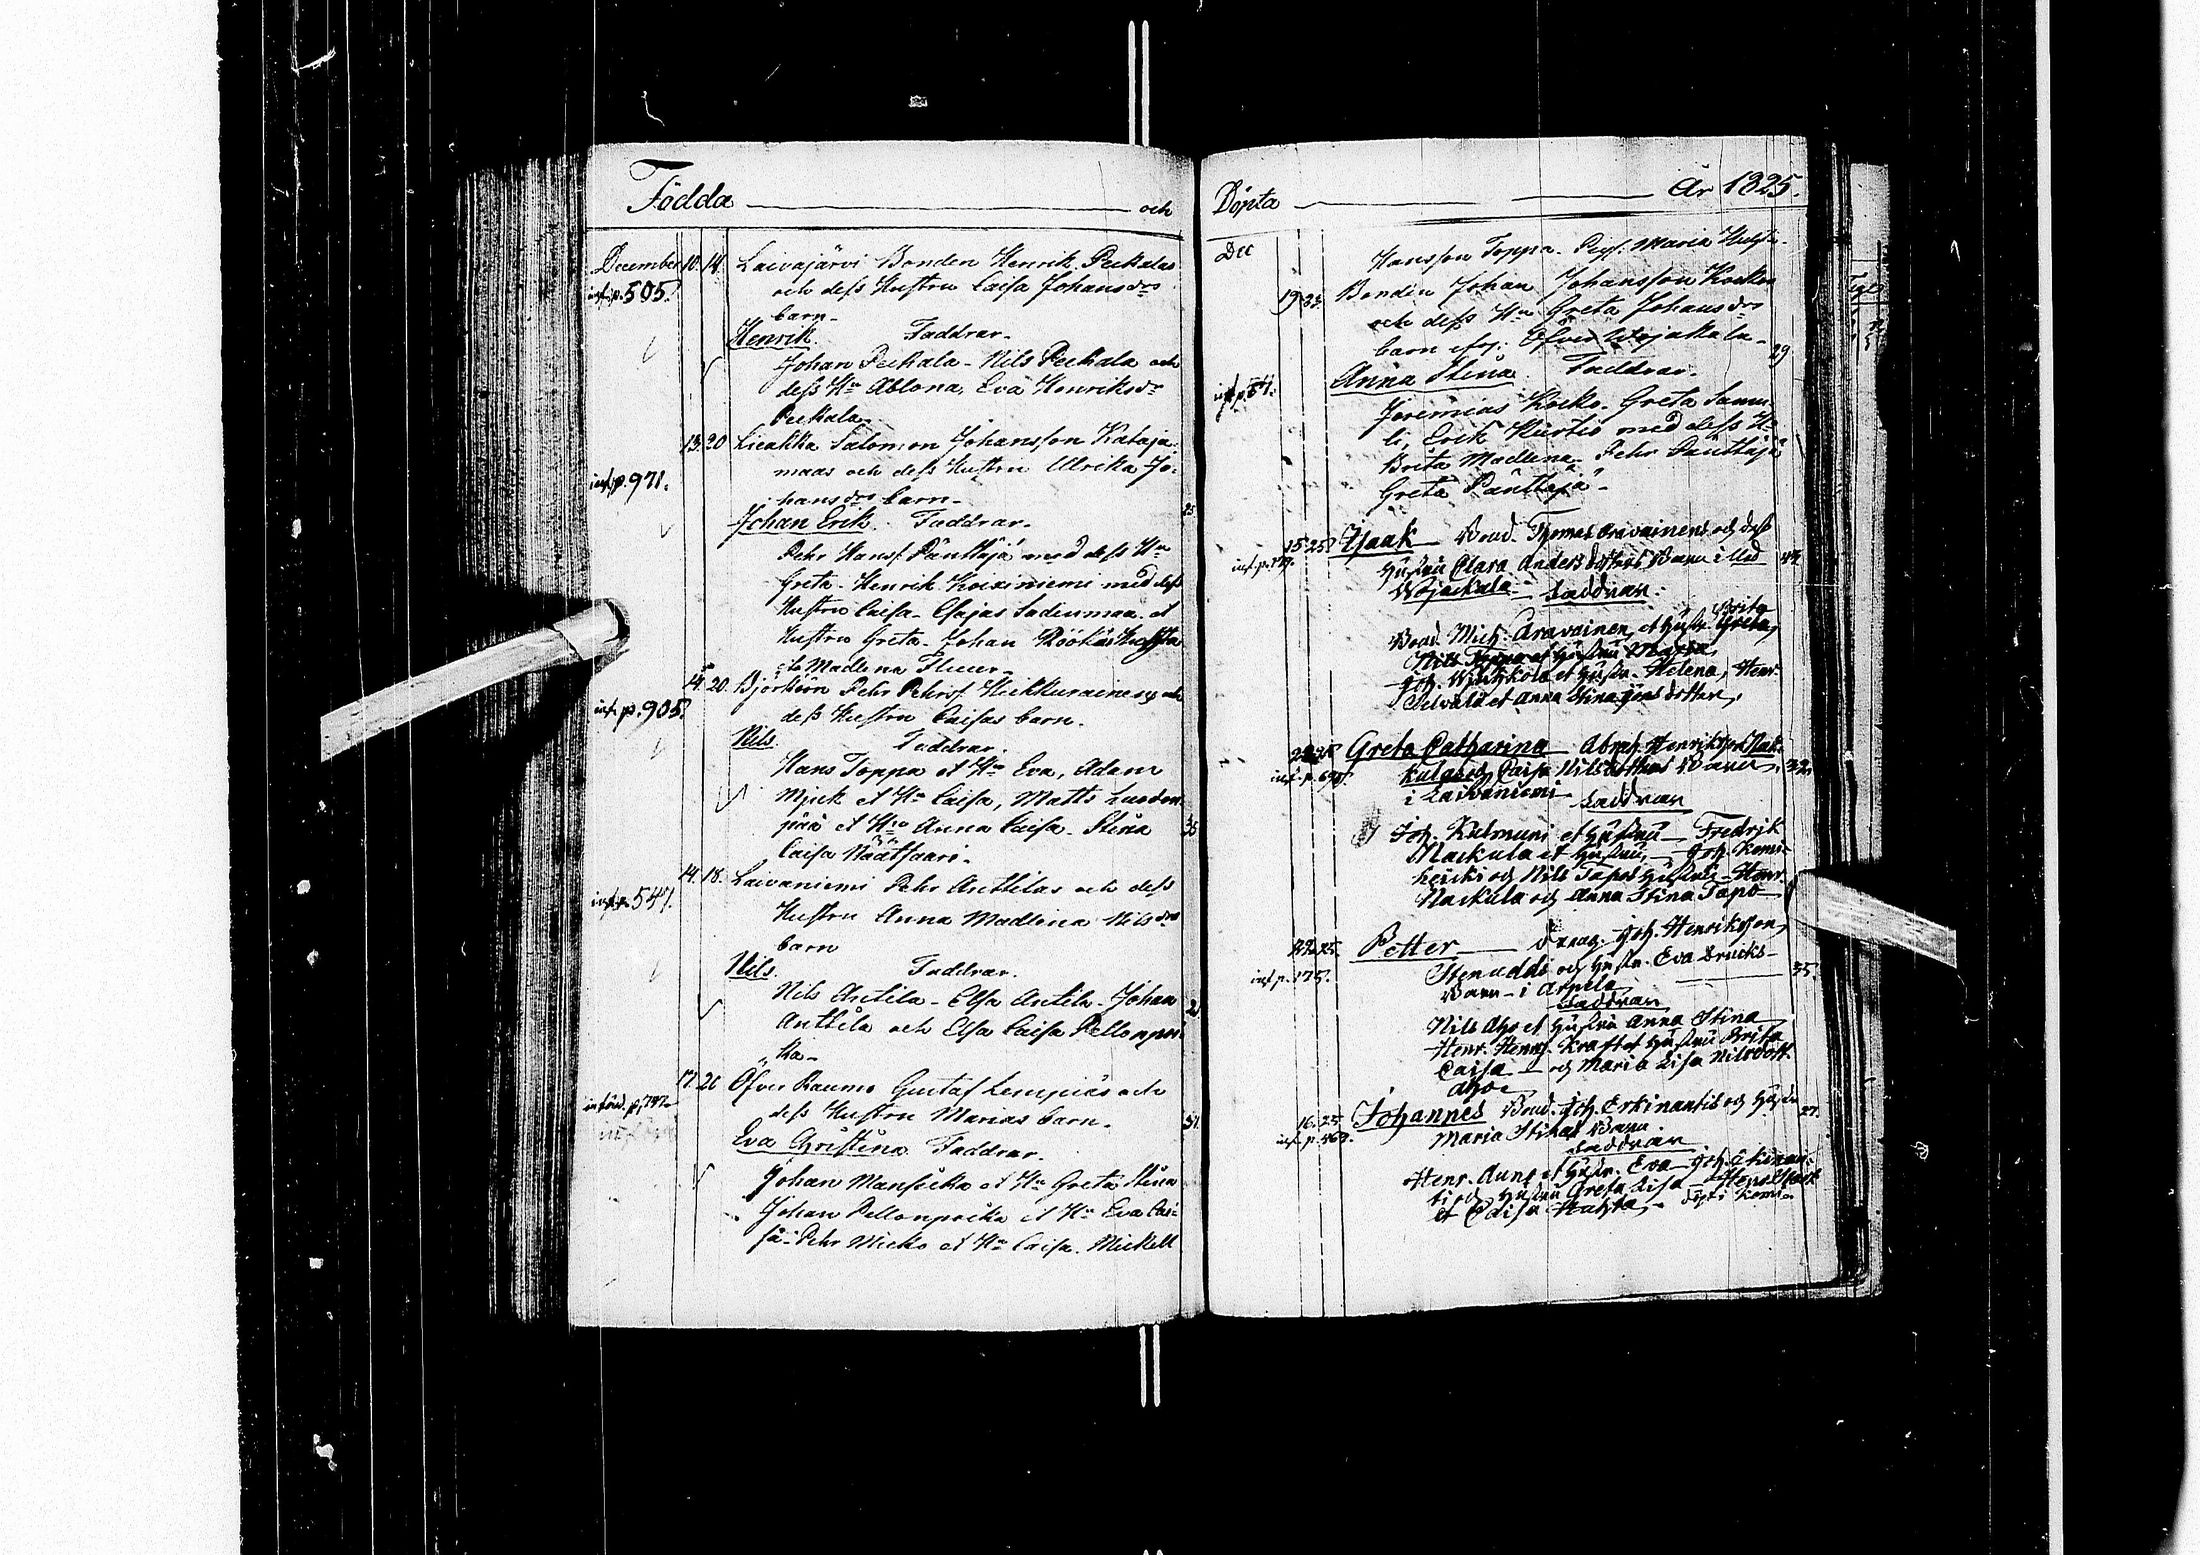 Födda och
December 10. 14. Laivajärvi Bonden Henrik Peckalas
inf. p. 505. och dess Hustru Caisa Johansdrs
barn.
Henrik. Faddrar.
Johan Peckala - Nils Peckala och
dess Hu Ablona, Eva Henriksdr
Peckala.
13. 20 Lieakka Salomon Johansson Kataja-
inf. p. 971. maas och dess Hustru Ulrika Jo-
hansdrs barn.
Johan Erik. Faddrar. 25
Pehr Hansf. Pänttäjä med dess Hu
Greta - Henrik Koiviniemi med dess
Hustru Caisa - Esajas Sadinmaa et
Hustru Greta - Johan
Madlena
14. 20. Björkön Pehr Pehrsf. och
inf. p. 905. dess Hustru Caisas barn.
Nils. Faddrar.
Hans Toppa et Hu Eva, Adam
Mjuk et Hu Caisa, Matts Luodon-
pää et Hu Anna Caisa - Stina 35
Caisa Näätsaari.
14. 18. Laivaniemi Pehr Anttilas och dess
inf. p. 547. Hustru Anna Madlena Nilsdrs
barn
Nils. Faddrar.
Nils Antila - Elsa Antila - Johan
Anttila och Elsa Caisa Pellonpoi-
ka -
17. 26 Öfver Raumo Gustaf Lempiäs och
införd. p. 747. dess Hustru Marias barn. 31.
Eva Christina Faddrar.
Johan Mansicka et Hu Greta Stina
Johan Pellonpoika et Hu Eva Cai-
sa - Pehr Micko et Hu Caisa. Mickell
Döpta År 1825.
Dec Hansson Toppa. Pig. Maria
19. 23. Bonden Johan Johansson Kockos
och dess Hu Greta Johansdrs
barn Öfver Wojakkala. 29
Anna Stina Faddrar.
Jeremias Kocko. Greta Samu-
li, Erik Kurtio med dess Hu
Brita Madlena. Pehr Pänttäjä
Greta Pänttäjä.
15. 25. Isaak Bond. Thomas Aravainens och dess
Hustru Clara Anders dotters Barn i Ned
Wojackala - Faddrar.
Brita
Bond. Mich. Aravainen, et Hustr. Greta,
Nils Toppa et Hustru Maria
Joh. et Hustr. Helena, Henr.
et Anna Stina Jöns dotter,
Greta Catharina Abrah. Henriksson Nac-
kulas och Caisa Nilsdotters Barn 32.
i Laivaniemi Faddrar
Joh. Kulmuni et Hustru - Fredrik
Nackula et Hustru, - Joh. Kemi-
och Nils Tapos Hustru - Henr.
Nackula och Anna Stina Tapo
22. 25. Petter Drag. Joh. Henriksson
inf. p. 175. Stenudd och Hustr. Eva 35.
Barn - i Arpela
Faddrar
Nils Aho et Hustru Anna Stina
Henr. Henrs. Kraft et Hustru Brita
Caisa - och Maria Lisa Nilsdott.
Aho
16. 25 Johannes Bond. Joh. Erkinantis och Hustr. 27.
Maria Stinas Barn
Faddrar
Henr. Aune et Hustr. Eva - Joh. Erkinan-
ti och Hustru Greta Lisa
et Caisa - döpt i Kemi